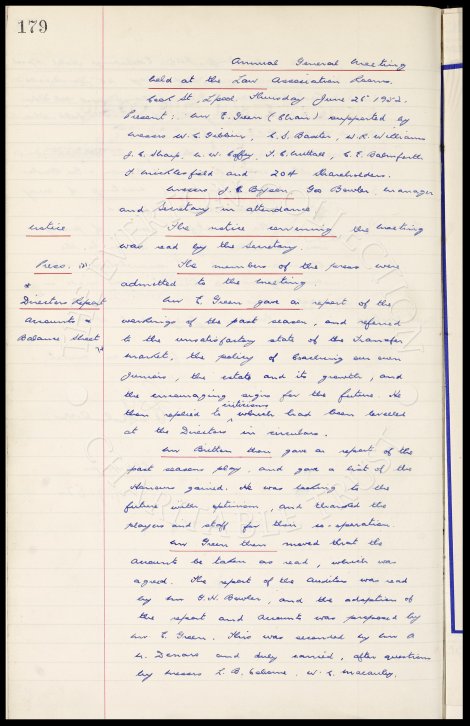 179
Annual General Meeting
held at the Law Association Rooms.
Cook St, L'pool. Thursday June 26 1952.
Present:. Mr E. Green (Chair) supported by
Messrs W. C. Gibbins, C. S. Baxter, W. R. Williams
J. C. Sharp, N. W. Coffey, F. C. Nuttall, C. E. Balmforth
F. Micklesfield and 204 Shareholders.
Messrs J. C. Geo Bowler, Manager
and Secretary in attendance
Notice. The notice convening the Meeting
was read by the Secretary.
Press. The members of the press were
admitted to the Meeting.
Directors Report Mr E Green gave a report of the
Accounts & workings of the past season, and referred
Balance Sheet to the unsatisfactory state of the Transfer
market, the policy of coaching our own
Juniors, the estate and its growth, and
the encouraging signs for the future. He
then replied to criticisms which had been levelled
at the Directors in circulars.
Mr Britton then gave a report of the
past seasons play, and gave a list of the
Honours gained. He was looking to the
future with optimism, and thanked the
players and staff for their co-operation.
Mr Green then moved that the
Accounts be taken as read, which was
agreed. The report of the Auditors was read
by Mr G. H. Bowler, and the adoption of
the report and Accounts was proposed by
Mr E. Green. This was seconded by Mr A
and duly carried, after questions
by Messrs L. B. W. L.